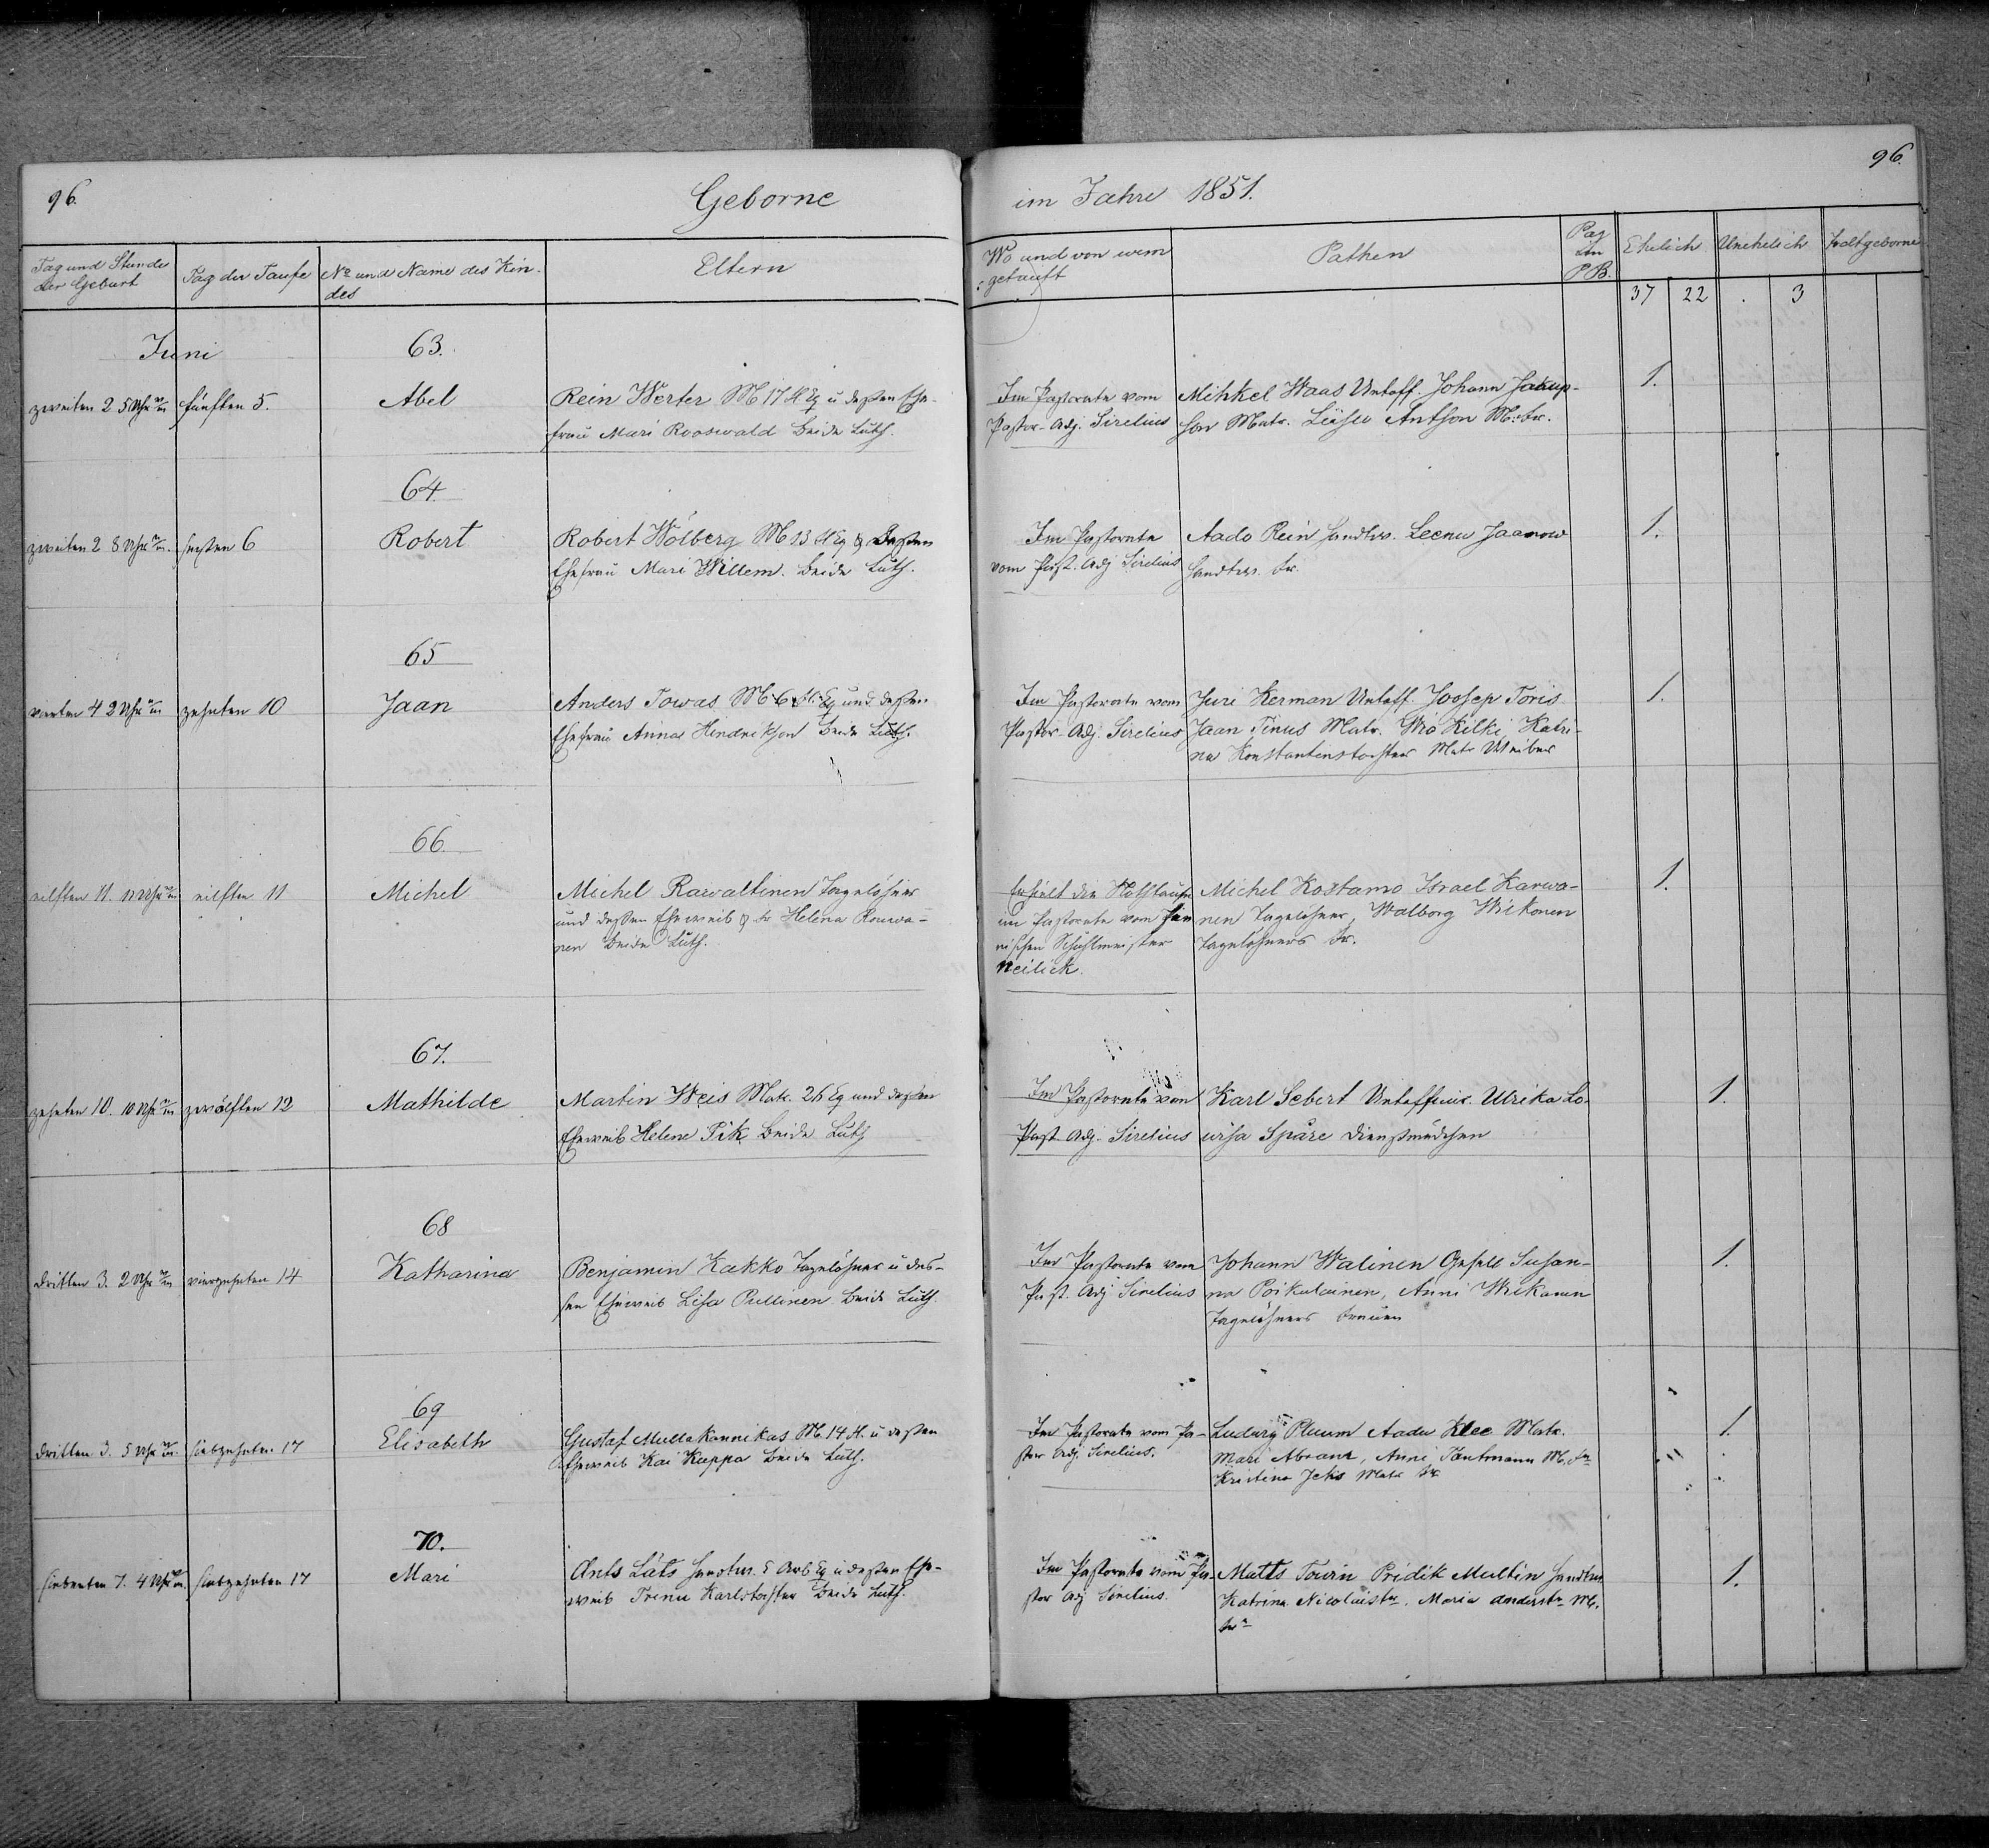 96.
Geborne
im Jahre 1851.
96.
Tag und Stunde der Geburt
Tag der Taufe
No und Name des Kindes
Eltern
Wo und von wem getauft
Pathen
Pag im P.B.
Ehelich
Unehelich
Todtgeborne
37 22 . 3
Juni
63.
zweiten 2 5 Uhr
fünften 5.
Abel
Rein Werter M 17 Eq u deßen Ehe-
frau Mari Rooswald beide Luth.
Im Pastorate vom
Pastor-Adj. Sirelius
Mihkel Waas Untoff. Johann Jakup-
son Matr. Leiso Antson M. fr.
1.
64.
zweiten 2 8 Uhr
sechsten 6
Robert
Robert Wölberg M 13 Eq & deßen
Ehefrau Mari Willem. beide Luth.
Im Pastorate
vom Past. Adj Sirelius
Aado Rein Handlr. Leenu Jaanow
Handlr. fr.
1.
65
vierten 4 2 Uhr
zehnten 10
Jaan
Anders Towas M 6 Eq und deßen
Ehefrau Anna Hendrikson beide Luth.
Im Pastorate vom
Pastor-Adj. Sirelius
Juri Kerman Untoff. Joosep Toris
Jaan Tinus Matr. Wio Kilki, Katri-
na Konstantinstochter Matr Weiber
1.
66.
eilften 11. 11 Uhr
eilften 11
Michel
Michel Rawaltinen Tagelöhner
und deßen Eheweib Helena Rouwa-
nen beide Luth.
Erhielt die Nothtaufe
im Pastorate vom fin
nischen Schulmeister
Neilick.
Michel Kostamo Israel Karwa-
nen Tagelöhner, Walborg Wikonen
Tagelöhners fr.
1.
67.
zehnten 10. 10 Uhr
zwölften 12
Mathilde
Martin Weis Matr. 26 Eq und deßen
Eheweib Helene Pik beide Luth
Im Pastorate von
Past Adj. Sirelius
Karl Sebert Untefficir. Ulrika Lo-
wisa Spåre Dienstmädchen
1.
68
dritten 3. 2 Uhr
vierzehnten 14
Katharina
Benjamin Kakko Tagelöhner u des-
sen Eheweib Lisa Pullinen beide Luth.
Im Pastorate vom
Past. Adj Sirelius
Johann Walinen Gesell Susan-
na Poikulainen, Anni Wikonen
Tagelöhners frauen
1.
69
dritten 3. 5 Uhr
siebzehnten 17
Elisabeth
Gustaf Mullakannikas M. 14 u deßen
Eheweib Kai Kuppa beide Luth.
Im Pastorate vom Pa-
stor Adj. Sirelius.
Ludwig Pluum Aadu Klee Matr.
Mari Abranz, Anni Tantmann M. fr
Kristina Jeks Matr fr
1.
70.
siebenten 7. 4 Uhr
siebzehnten 17
Mari
Ants Läts Handtw. 5 Arb Eq u deßen Ehe-
weib Trenu Karlstochter beide Luth.
Im Pastorate vom Pa-
stor Adj Sirelius.
Matts Touin Pridik Multin
Katrina Nicolaistr. Maria Anderstr M.
fr
1.